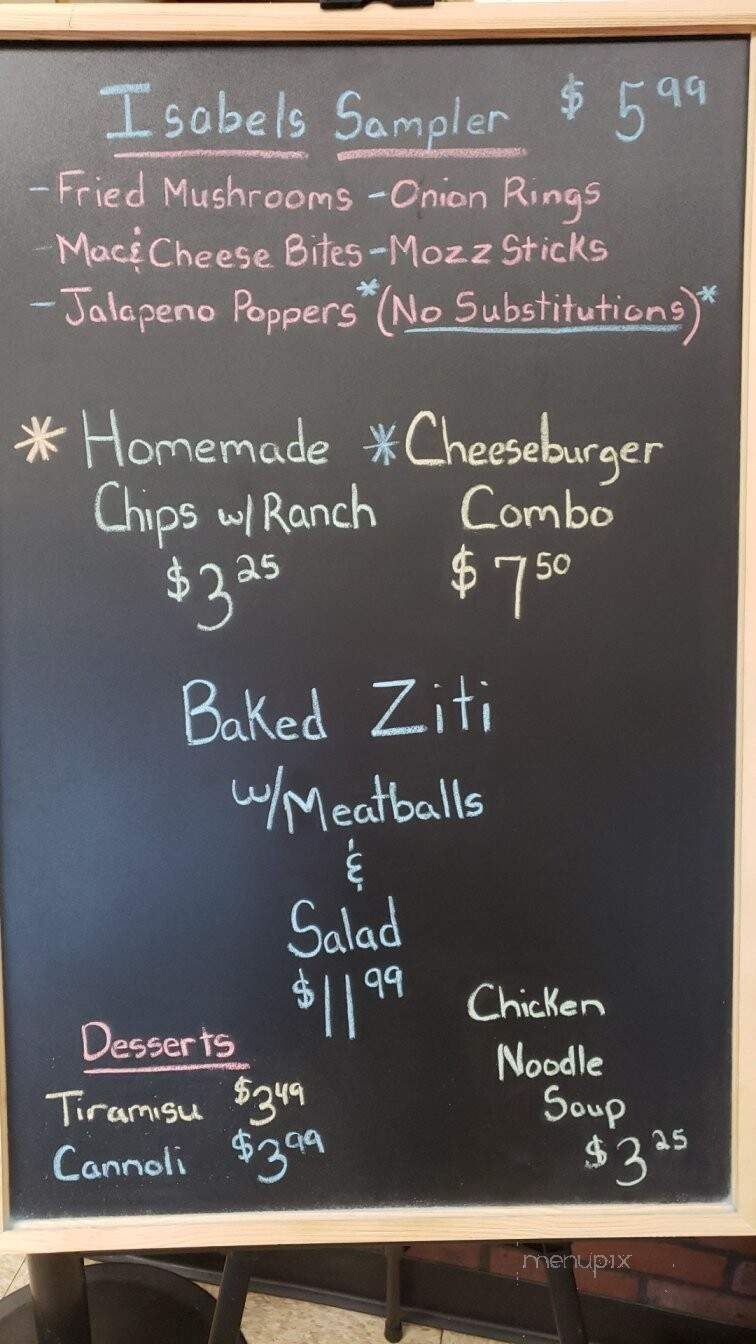 Isabels Sampler $5.99
-Fried Mushrooms -Onion Rings
-Mac & Cheese Bites -Mozz Sticks
-Jalapeno Poppers *(No Substitutions)*
* Homemade
Chips w/ Ranch
$3.25
* Cheeseburger
Combo
$7.50
Baked Ziti
w/Meatballs
&
Salad
$11.99
Desserts
Tiramisu $3.49
Cannoli $3.99
Chicken
Noodle
Soup
$3.25
menupix